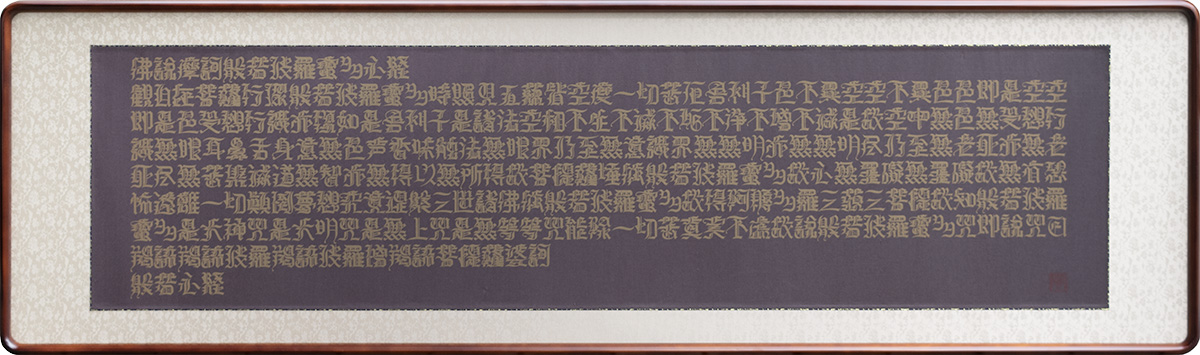 佛說摩訶般若波羅蜜多心經
觀自在菩薩行深般若波羅蜜多時照見五蘊皆空度一切苦厄舍利子色不異空空不異色色即是空空
即是色受想行識亦復如是舍利子是諸法空相不生不滅不垢不淨不增不減是故空中無色無受想行
識無眼耳鼻舌身意無色聲香味觸法無眼界乃至無意識界無無明亦無無明盡乃至無老死亦無老
死盡無苦集滅道無智亦無得以無所得故菩提薩埵依般若波羅蜜多故心無罣礙無罣礙故無有恐
怖遠離一切顛倒夢想究竟涅槃三世諸佛依般若波羅蜜多故得阿耨多羅三藐三菩提故知般若波羅
蜜多是大神咒是大明咒是無上咒是無等等咒能除一切苦真實不虛故說般若波羅蜜多咒即說咒曰
羯諦羯諦波羅羯諦波羅僧羯諦菩提薩婆訶
般若心經